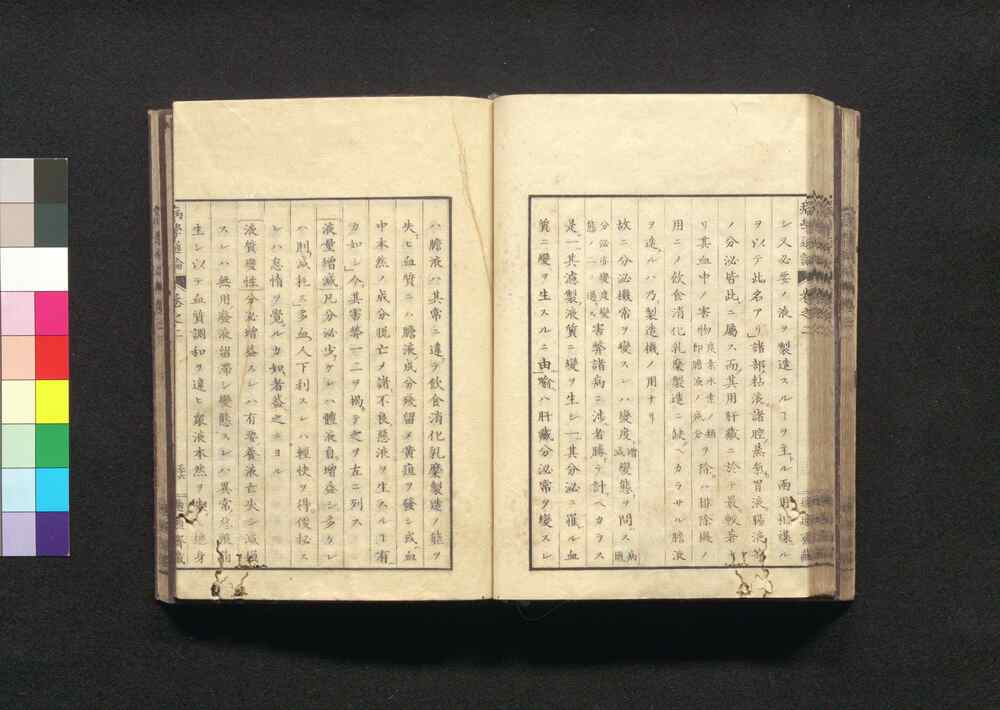 シ又必要ノ液ヲ製造スルヿヲ主ル兩用相謀ル
ヲ以テ此名アリ諸部粘液諸腔蒸氣胃液腸液等
ノ分泌皆此ニ屬ス而其用肝藏ニ於テ最較著
リ其血中ノ害物 炭素水素ノ類即膽液ノ成分 ヲ除ハ排除機ノ
用ニノ飮食消化乳糜製造ニ缺ヘカラサル膽液
ヲ造ルハ乃製造機ノ用ナリ
故ニ分泌機常ヲ變スレハ變度 增減 變態ヲ問ス 病
分泌亦變度變態ノ二 害弊諸病ニ渉者勝テ計ヘカラス
是一其濾製液質ニ變ヲ生シ一其分泌ニ罹ル血
質ニ變ヲ生スルニ由喩ハ肝藏分泌常ヲ變スレ
ハ膽液ハ其常ニ違テ飮食消化乳糜製造ノ能ヲ
失ヒ血質ニハ膽液成分殘留ノ黃疸ヲ發シ或血
中本然ノ成分脱亡ノ諸不良惡液ヲ生スルヿ有
カ如シ今其害弊一二ヲ揭テ之ヲ左ニ列ス
液量增減凡分泌少ケレハ體液自增盛シ多ケレ
ハ則減耗ス多血人下利スレハ輕快ヲ得便秘ス
レハ怠惰ヲ覺ルカ如者蓋之ニヨル
液質變性分泌增盛スレハ有要養液亡失シ減損
スレハ無用廢液留滯シ變態スレハ異常惡液
生シ以テ血質調和ヲ違ヒ衆液本然ヲ
病學通論
卷之二